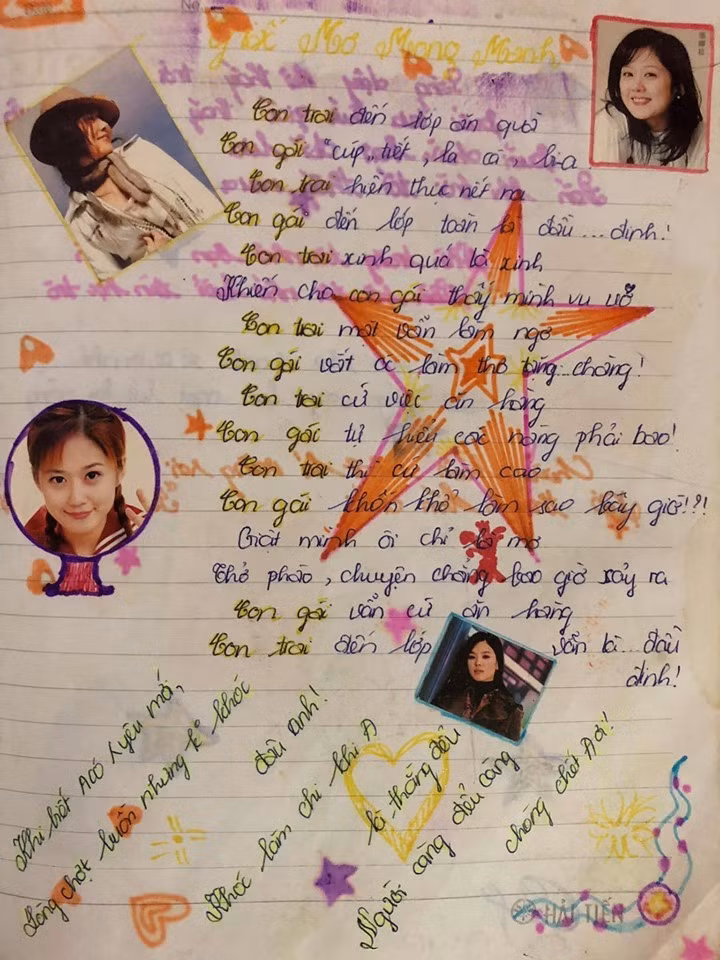 Giấc Mơ Mong Manh
Con trai đến lớp ăn quà
Con gái "cúp" tiết, la cà, bi-a
Con trai hiện thục nết na
Con gái đến lớp toàn là đầu...đinh!
Con trai xinh quá là xinh
Khiến cho con gái thấy mình vu vơ
Con trai mặt vẫn làm ngơ
Con gái vắt óc làm thơ tặng...chàng!
Con trai cứ việc ăn hàng
Con gái tự hiểu các nàng phải bao!
Con trai thì cứ làm cao
Con gái khốn khổ làm sao bây giờ!?!
Giật mình ôi chỉ là mơ
Thở phào, chuyện chẳng bao giờ xảy ra
Con gái vẫn cứ ăn hàng
Con trai đến lớp vẫn là...đầu
đinh!
Khi biết A có ny mới,
Lòng chợt buồn nhưng k khóc
đâu anh!
Khóc làm chi khi A
là thằng đểu
Người càng đểu càng
chóng chết A ơi!
HẢI TIẾN